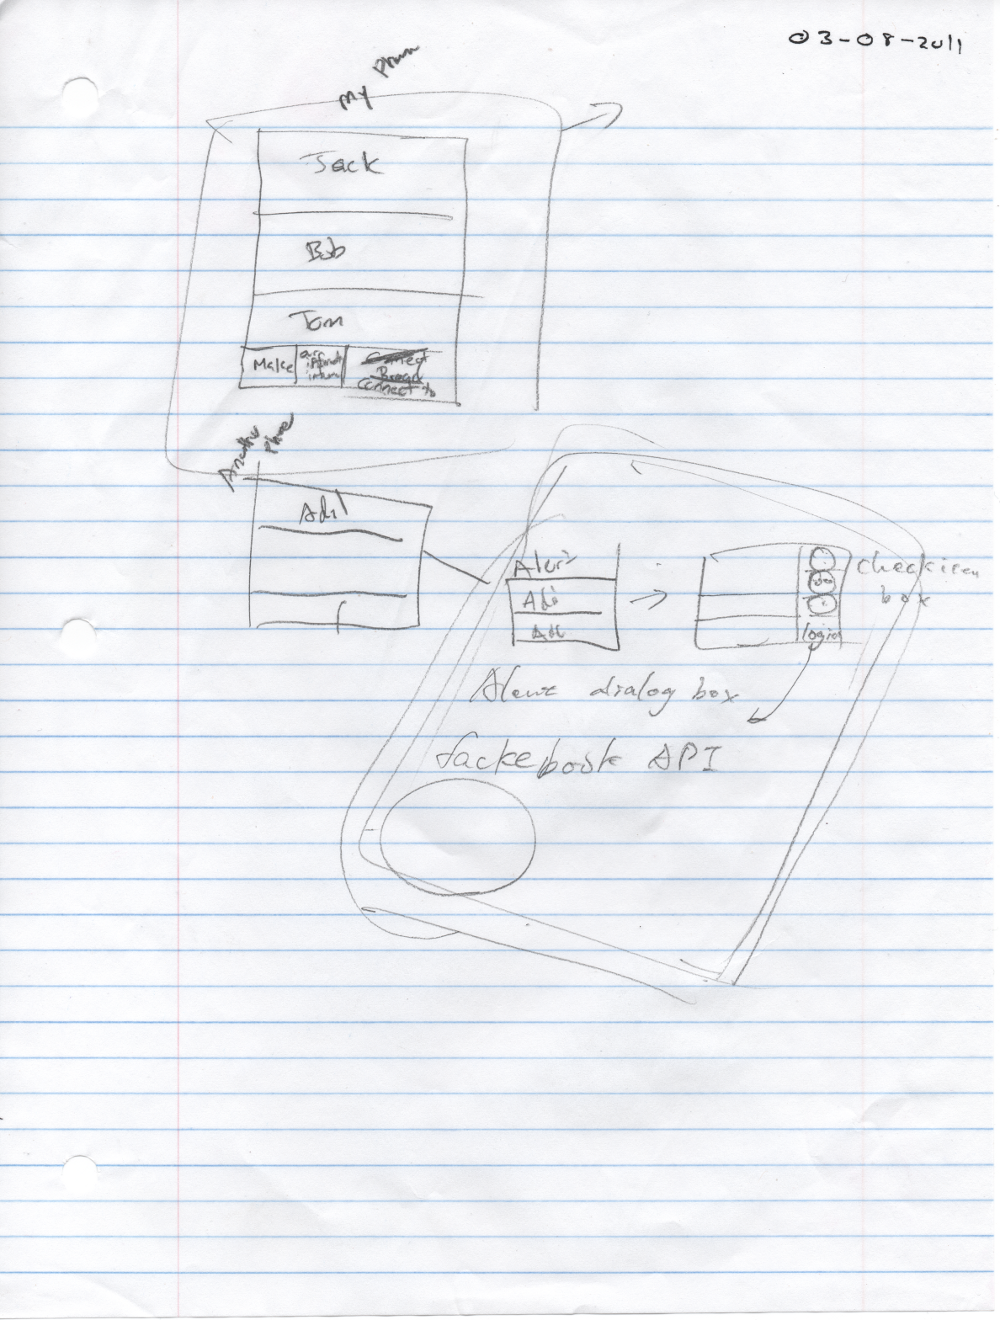 03-08-2011
My Phone
Jack
Bob
Tom
Make
Connect
connect to
Another phone
Adil
Alert
check icon
box
login
Alert dialog box
facke book API